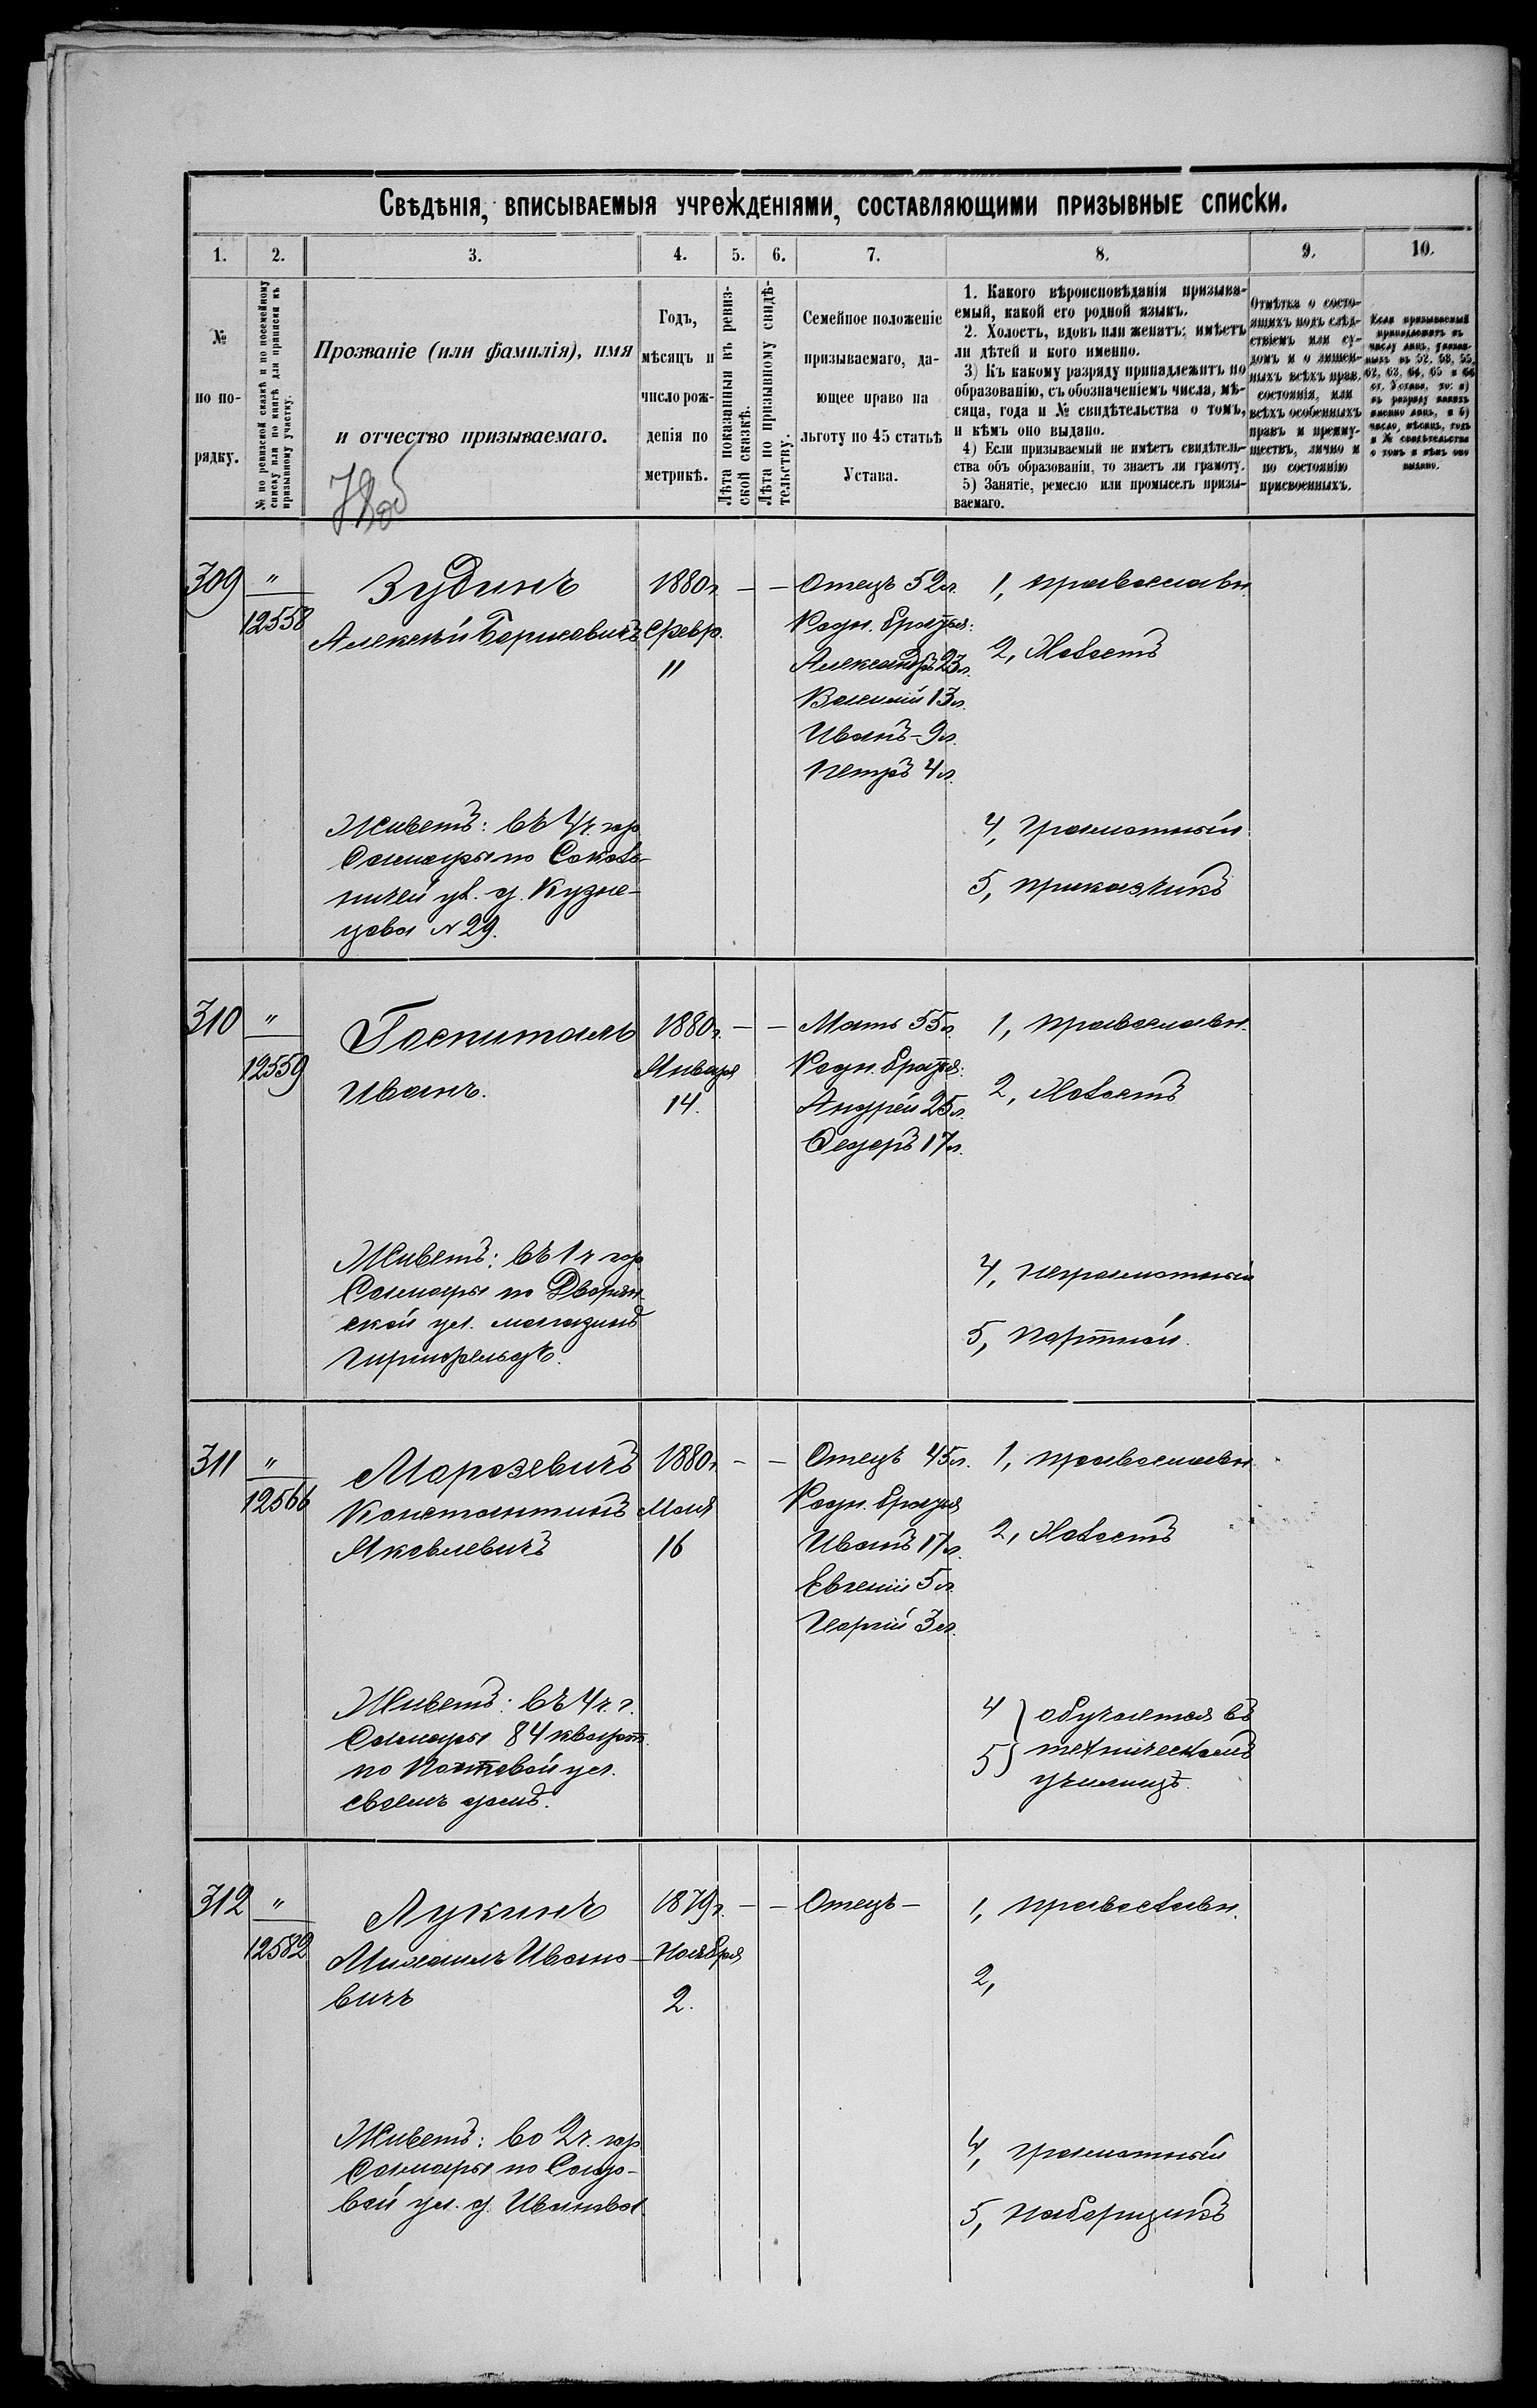 Свѣдѣнія, вписываемыя учрежденіями, составляющими призывные списки.
1. 2. 3. 4. 5. 6. 7. 8. 9. 10.
№ по порядку.
№ по ревизской сказкѣ и по посемейному списку или по книгѣ для приписки къ призывному участку.
Прозваніе (или фамилія), имя
и отчество призываемаго.
Годъ,
мѣсяцъ и
число рож-
денія по
метрикѣ.
Лѣта показанныя въ ревиз-
ской сказкѣ.
Лѣта по призывному свидѣ-
тельству.
Семейное положеніе
призываемаго, да-
ющее право на
льготу по 45 статьѣ
Устава.
1. Какого вѣроисповѣданія призыва-
емый, какой его родной языкъ.
2. Холостъ, вдовъ или женатъ; имѣетъ
ли дѣтей и кого именно.
3) Къ какому разряду принадлежитъ по
образованію, съ обозначеніемъ числа, мѣ-
сяца, года и № свидѣтельства о томъ,
и кѣмъ оно выдано.
4) Если призываемый не имѣетъ свидѣтель-
ства объ образованіи, то знаетъ ли грамоту.
5) Занятіе, ремесло или промыселъ призы-
ваемаго.
Отмѣтка о состо-
ящихъ подъ слѣд-
ствіемъ или су-
домъ и о лишен-
ныхъ всѣхъ прав.
состоянія, или
всѣхъ особенныхъ
правъ и преиму-
ществъ, лично и
по состоянію
присвоенныхъ.
Если призываемый
принадлежитъ къ
числу лицъ, указан-
ныхъ въ 52, 53, 55,
62, 63, 64, 65 и 66
ст. Устава, то: а)
къ разряду какихъ
именно лицъ, и б)
число, мѣсяцъ, годъ
и № свидѣтельства
о томъ и кѣмъ оно
выдано.
309 " 12558
Зудинъ
Алексѣй Борисовичъ
1880г.
Февр.
"
— —
Отецъ 52л.
Родн. братья:
Александръ 23л.
Василій 13л.
Иванъ - 9л.
Петръ 4л.
1, православн.
2, Холостъ
4, Грамотный
5, приказчикъ
Живетъ: въ 4ч. гор.
Самары по Соколь-
ничей ул. д. Кузне-
цова № 29.
310 " 12559
Госпиталь
Иванъ.
1880г.
Января
14.
— —
Мать 55л.
Родн. братья:
Андрей 25л.
Федоръ 17л.
1, православн.
2, Холостъ
4, неграмотный
5, портной.
Живетъ: въ 1ч гор.
Самары по Дворян-
ской ул. магазинъ
Гиршфельдъ.
311 " 12566
Морозевичъ
Константинъ
Яковлевичъ
1880г.
Мая
16
— —
Отецъ 45л.
Родн. братья
Иванъ 17л.
Евгеній 5л.
Георгій 3л.
1, православн.
2, Холостъ
4 } обучается въ
5 } техническомъ
училищѣ.
Живетъ: въ 4ч. г.
Самары 84 кварт.
по Почтовой ул.
своемъ домѣ.
312 " 12582
Лукинъ
Михаилъ Ивано-
вичъ
1879г.
Ноября
2.
— —
Отецъ —
1, православн.
2,
4, грамотный
5, наборщикъ
Живетъ: во 2ч. гор
Самары по Садо-
вой ул. д. Иванова.